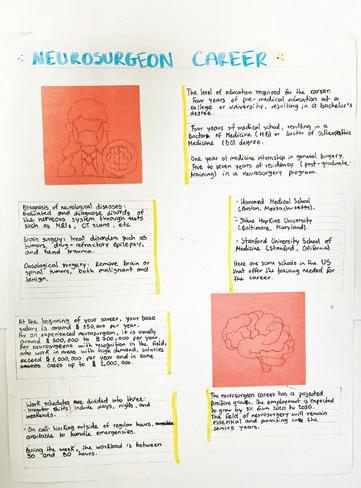 NEUROSURGEON CAREER
The level of education required for the career:
Four years of pre-medical education at a
college or university, resulting in a bachelor's
degree.
Four years of medical school, resulting in a
Doctor of Medicine (MD) or Doctor of Osteopathic
Medicine (DO) degree.
One year of medicine internship in general surgery.
Five to seven years of residency (post-graduate
training) in a neurosurgery program.
Diagnosis of neurological diseases:
Evaluate and diagnose disorders of
the nervous system through tests
such as MRIs, CT scans, etc.
Brain surgery: treat disorders such as
tumors, drug-refractory epilepsy, and
head trauma.
Oncological surgery: Remove brain or
spinal tumors, both malignant and
benign.
• Harvard Medical School
(Boston, Massachusetts).
• Johns Hopkins University
(Baltimore, Maryland).
• Stanford University School of
Medicine (Stanford, California)
Here are some schools in the US
that offer the training needed for
the career.
At the beginning of your career, your base
salary is around $ 350,000 per year.
For an experienced neurosurgeon, it is usually
around $ 600,000 to $ 800,000 per year.
For neurosurgeons with recognition in the field,
who work in areas with high demand, salaries
exceed $ 1,000,000 per year and in some
cases up to $ 2,000,000.
Work schedules are divided into three:
• irregular shifts: include days, nights, and
weekends.
• On call: working outside of regular hours,
available to handle emergencies.
During the week, the workload is between
50 and 80 hours.
The neurosurgeon career has a projected
positive growth. The employment is expected
to grow by 3% from 2020 to 2030.
The field of neurosurgery will remain
essential and promising into the
coming years.